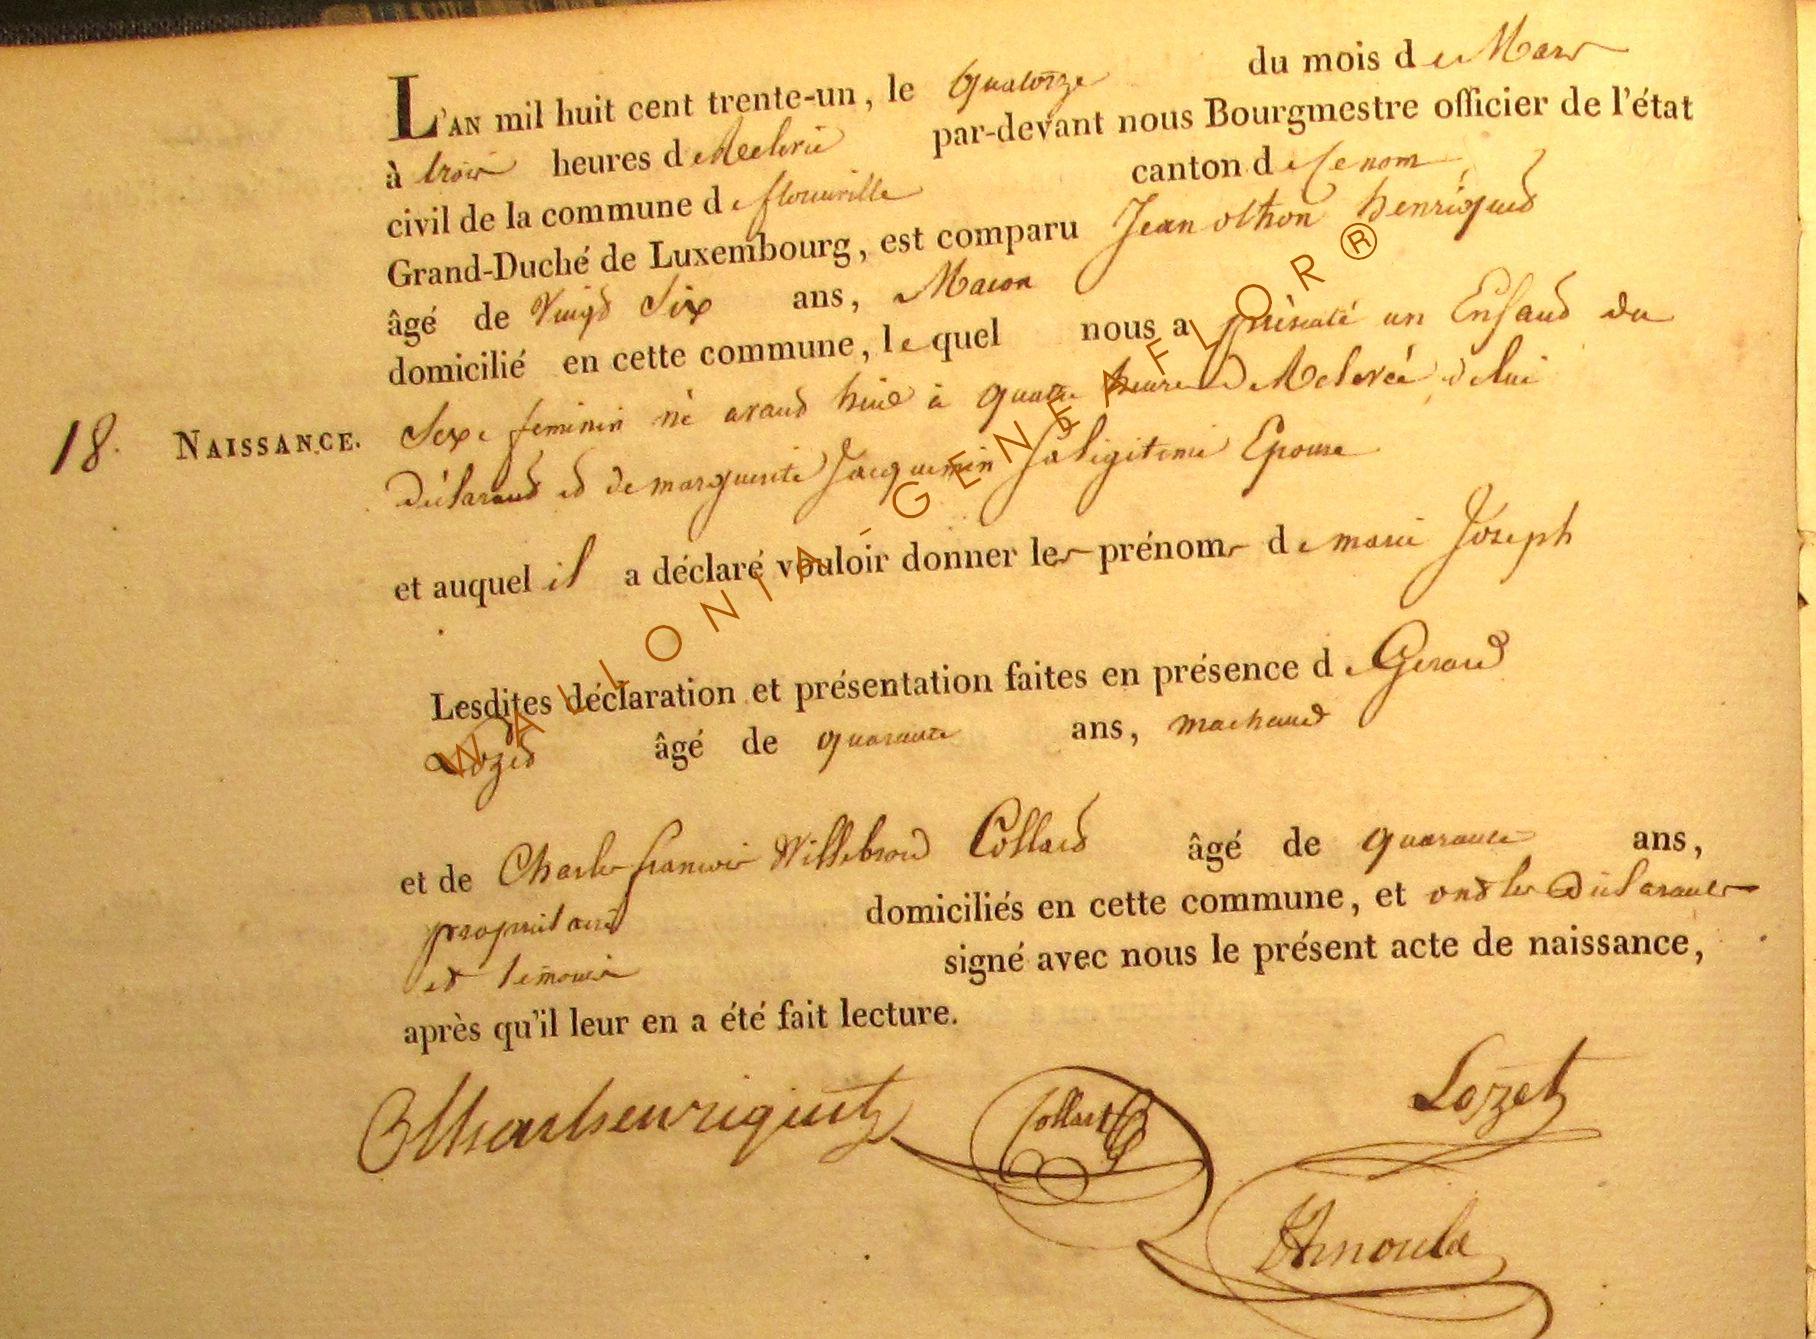 L'AN mil huit cent trente-un, le quatorze du mois de Mars
à trois heures de Relevée par-devant nous Bourgmestre officier de l'état
civil de la commune de flonville canton de
Grand-Duché de Luxembourg, est comparu Jean othon henriquet
âgé de Vingt Six ans, Macon
domicilié en cette commune, lequel nous a présenté un Enfand du
18. NAISSANCE. Sexe feminin né avand hier à quatre heures de Relevée de lui
Déclarand et de marguerite Jacquemin Sa legiteme Epouse
et auquel il a déclaré vouloir donner les prénoms de marie Joseph
Lesdites déclaration et présentation faites en présence de Gerard
Lozet âgé de quarante ans, machand
et de Charles francois Willebrord Collard âgé de quarante ans,
propriétaire domiciliés en cette commune, et ond les Déclarants
et temoins signé avec nous le présent acte de naissance,
après qu'il leur en a été fait lecture.
henriquet Collart Lozet
Arnould
WALLONIA-GENEAFLOR®